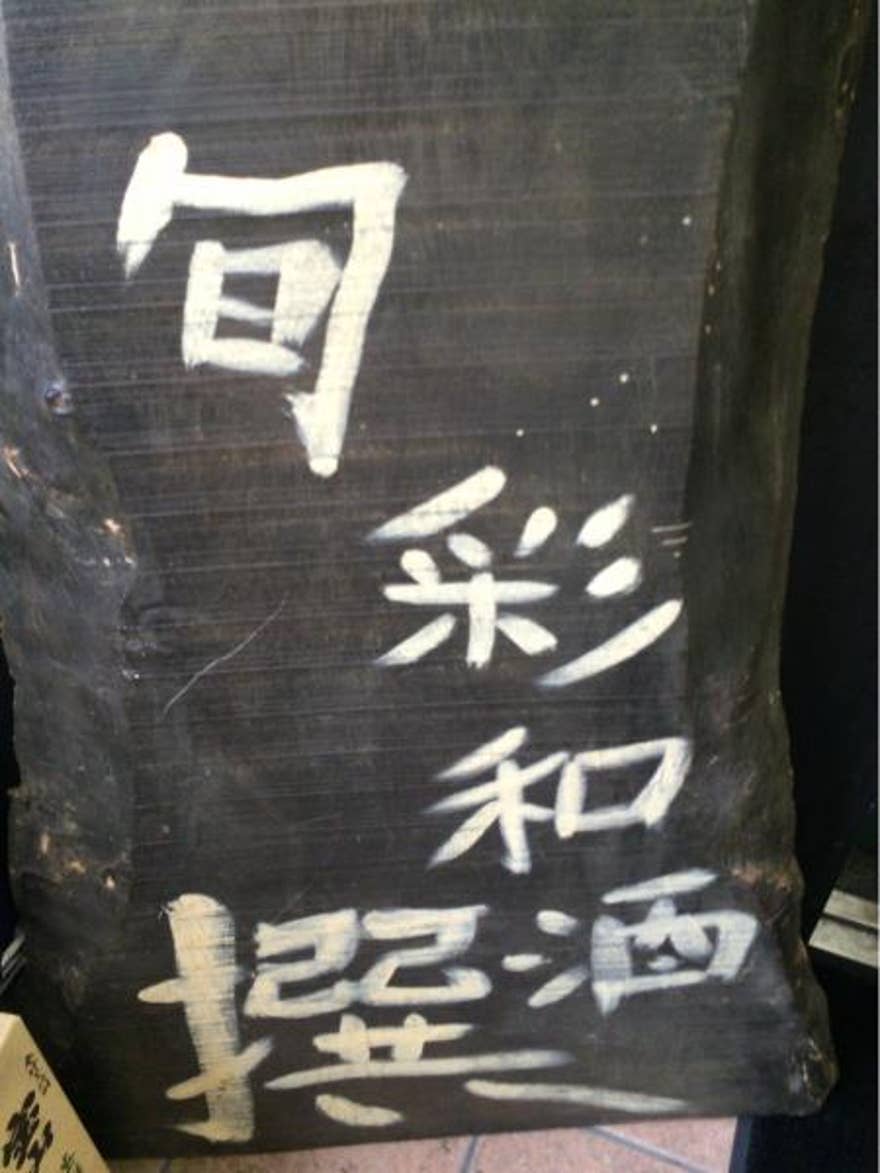 旬彩和酒
撰